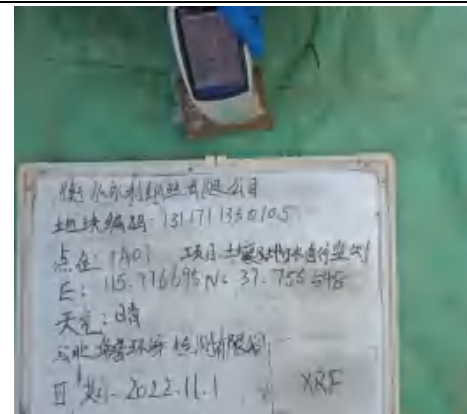 衡水永利织丝有限公司
地块编码:1311711350105
点位:1A01 项目:土壤及地下水自行监测
E:115.776695 N:37.755548
天气:晴
环境检测有限公司
日期:2022.11.1 XRF